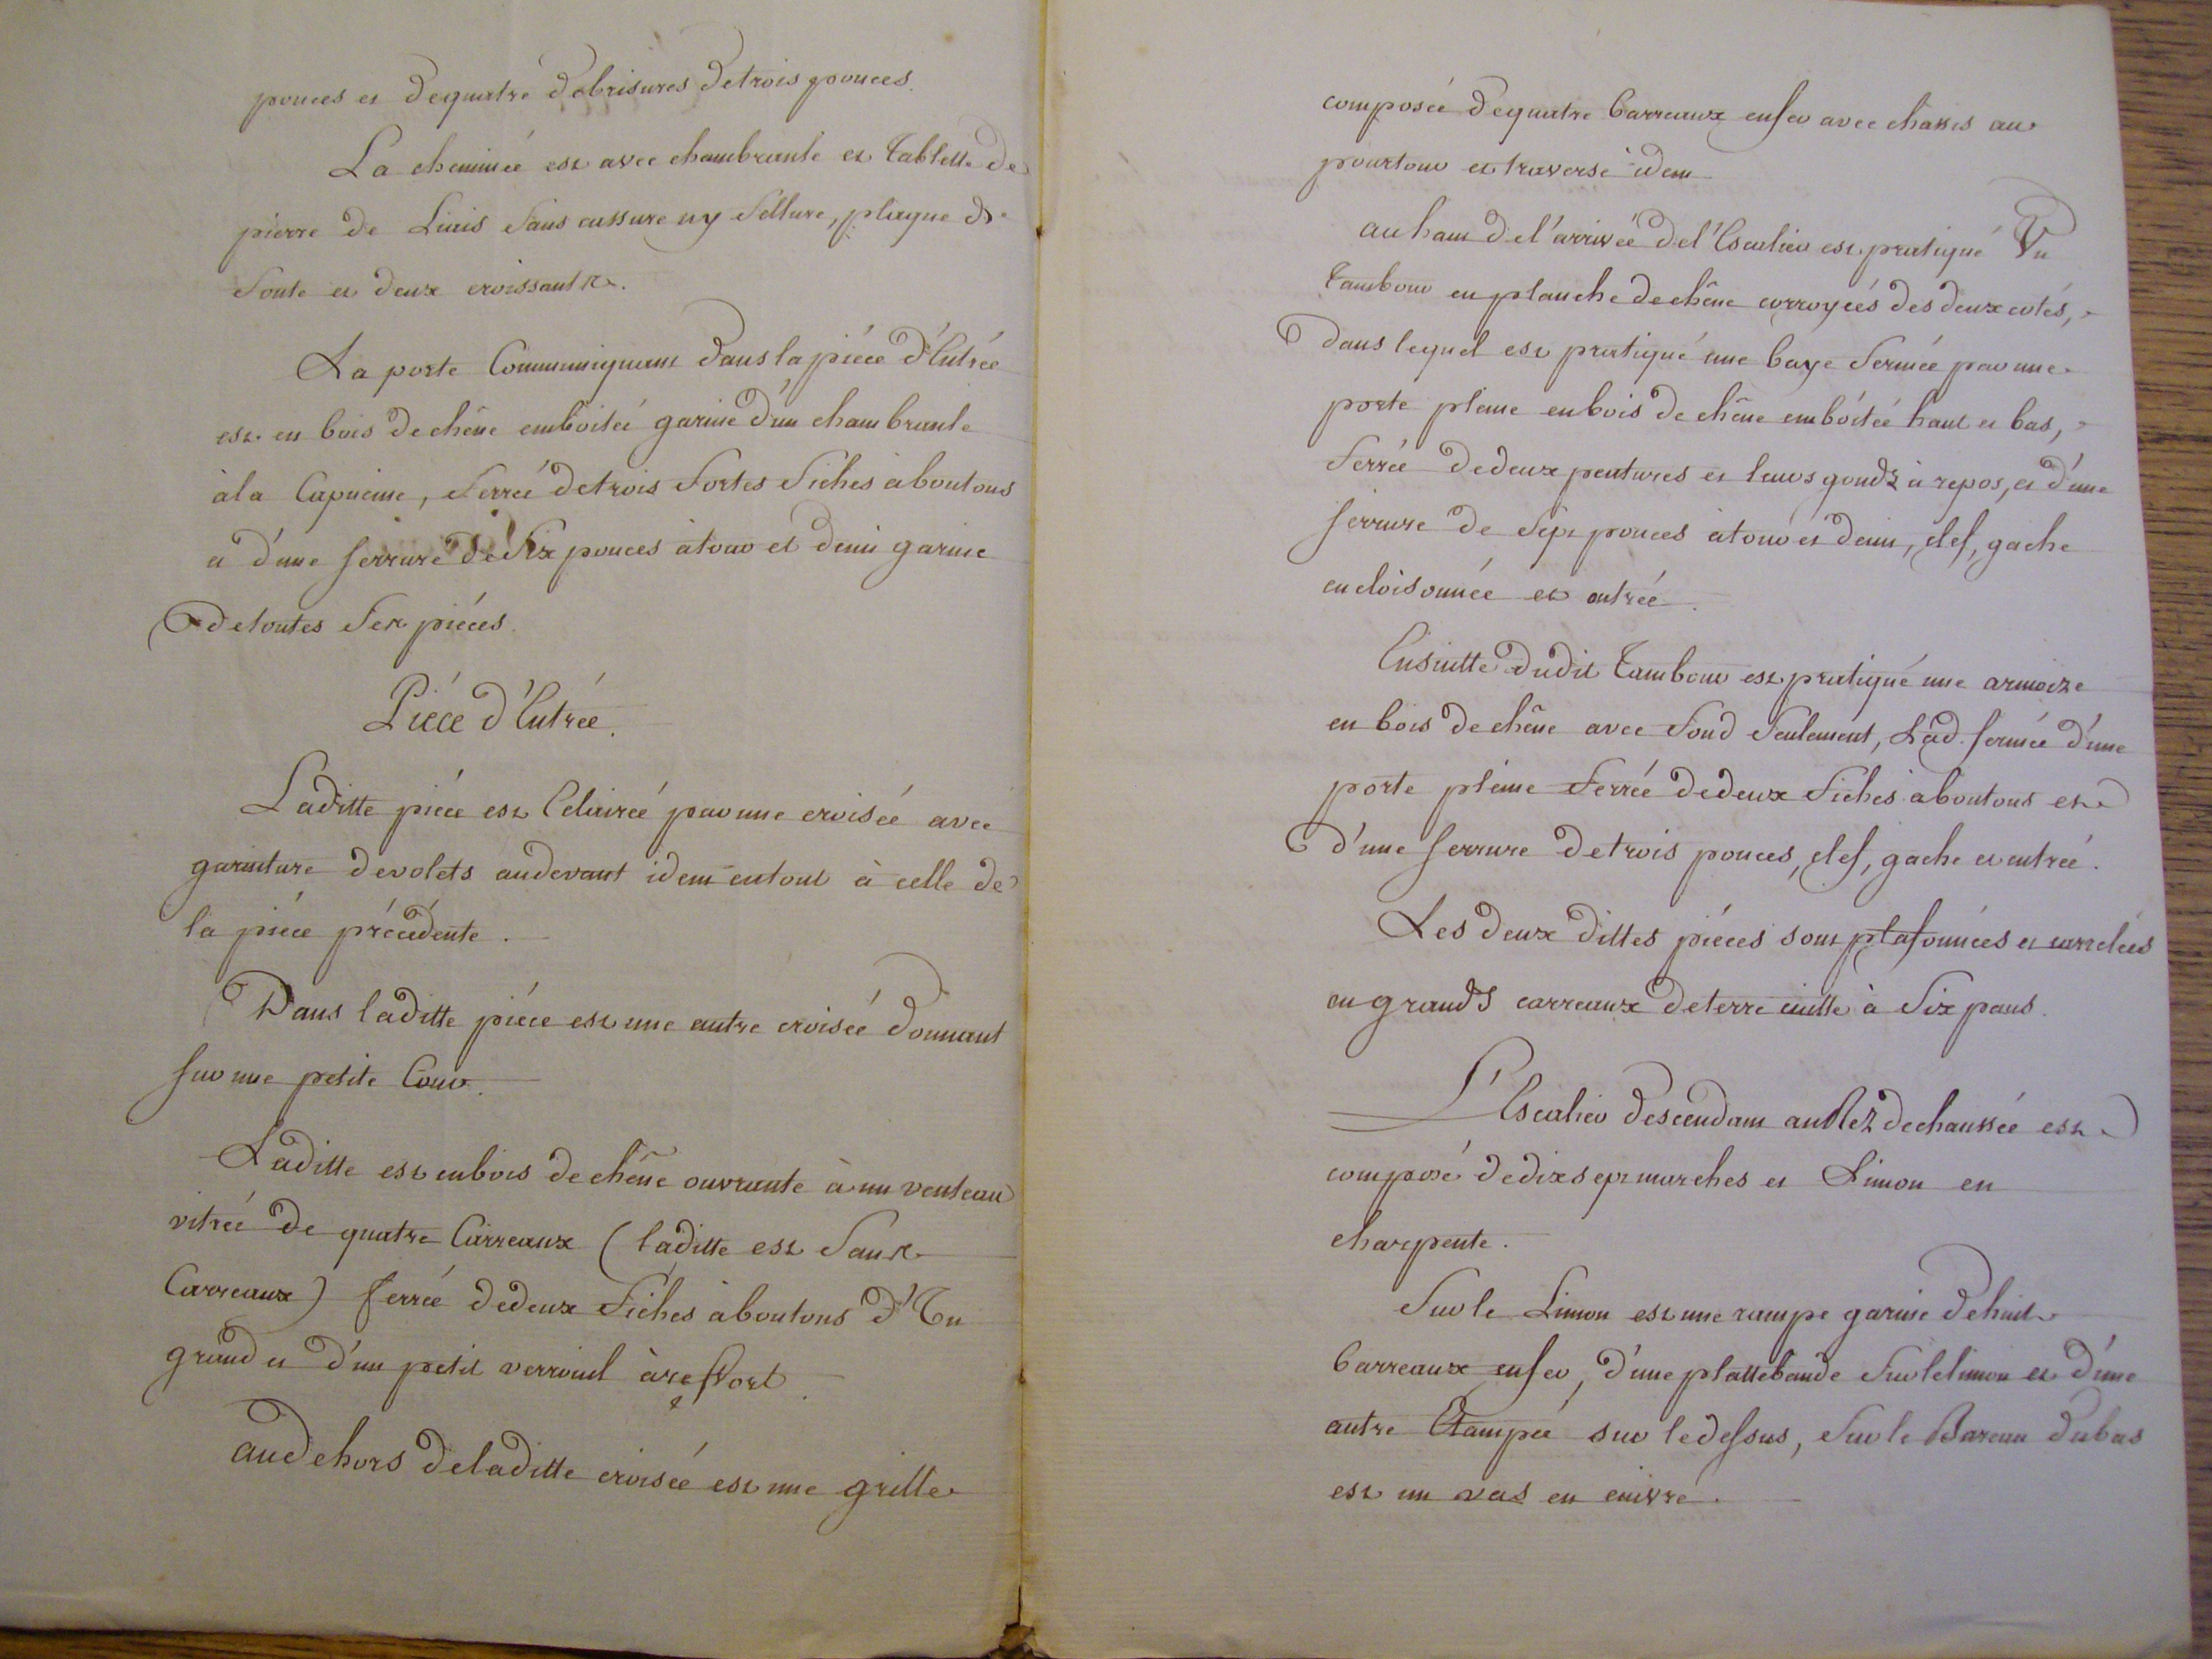 pouces et de quatre de brisures de trois pouces.
La cheminée est avec chambranle et tablette de
pierre de Liais sans cassure ny fellure, plaque de
fonte et deux croissants.
La porte Communiquant dans la piéce d'Entrée
est en bois de chêne emboitée garnie d'un chambranle
à la Capucine, ferrée de trois fortes fiches à boutons
et d'une serrure de six pouces à tour et demi garnie
de toutes ses piéces.
Piéce d'Entrée.
Laditte piéce est Eclairée par une croisée avec
garniture de volets au devant idem en tout à celle de
la piéce précédente.
Dans laditte piéce est une autre croisée donnant
sur une petite Cour.
Laditte est en bois de chêne ouvrante à un venteau
vitrée de quatre Carreaux (laditte est sans
Carreaux) ferrée de deux fiches à boutons d'Un
grand et d'un petit verrouil à ressort.
au dehors de laditte croisée est une grille
composée de quatre barreaux en fer avec chassis au
pourtour et traverse idem
au haut de l'arrivée de l'Escalier est pratiqué Un
tambour en planche de chêne corroyées des deux cotés,
dans lequel est pratiqué une baye fermée par une
porte pleine en bois de chêne emboîtée haut et bas,
ferrée de deux pentures et leurs gonds à repos, et d'une
serrure de sept pouces à tour et demi, clef, gache
encloisonnée et entrée.
Ensuitte dudit tambour est pratiqué une armoire
en bois de chêne avec fond seulement, Lad. fermée d'une
porte pleine ferrée de deux fiches à boutons et
d'une serrure de trois pouces, clef, gache et entrée.
Les deux dittes piéces sont plafonnées et carrelées
en grands carreaux de terre cuitte à six pans.
L'Escalier descendant au Rez de chaussée est
composé de dix sept marches et Limon en
charpente.
Sur le Limon est une rampe garnie de huit
barreaux en fer, d'une plattebande sur le limon et d'une
autre Etampée sur le dessus, sur le Bareau du bas
est un vas en cuivre.